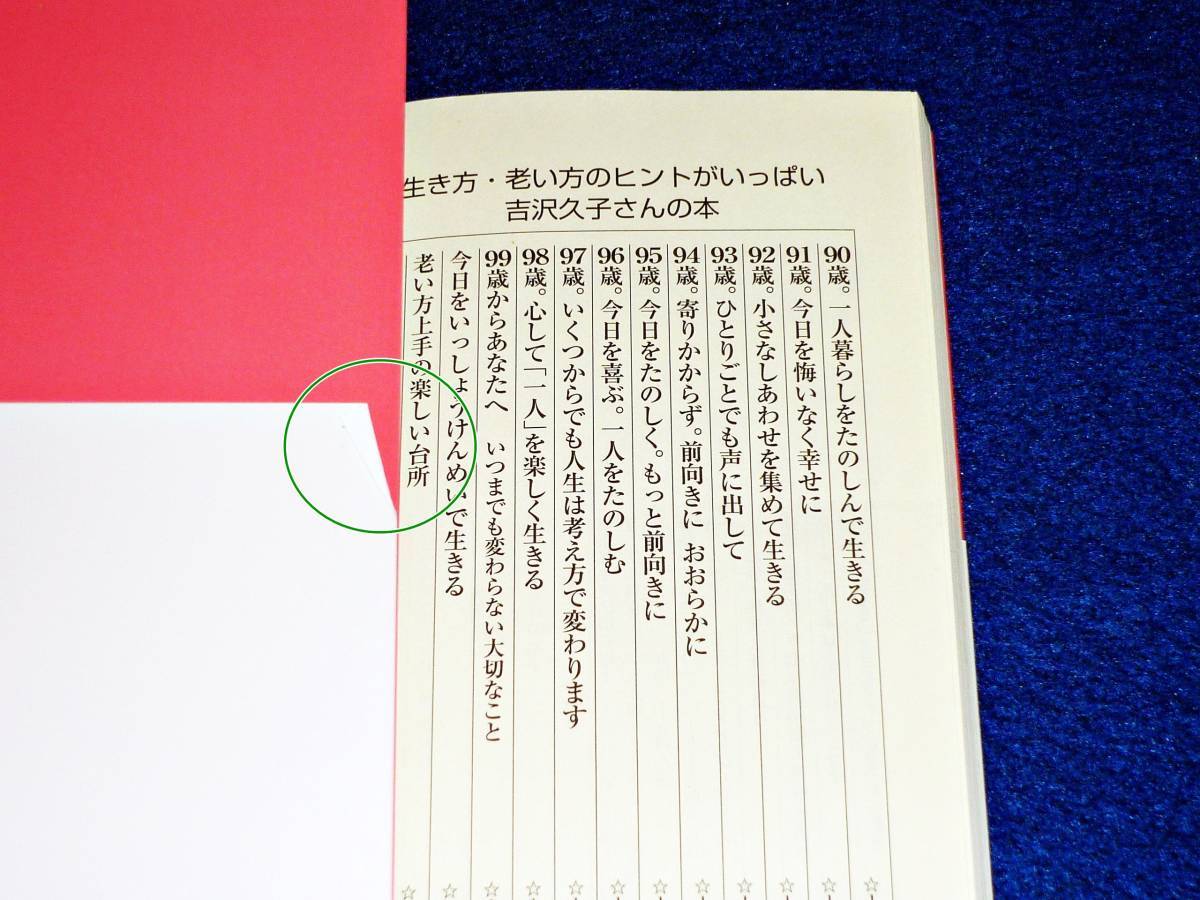 生き方・老い方のヒントがいっぱい
吉沢久子さんの本
90歳。一人暮らしをたのしんで生きる
91歳。今日を悔いなく幸せに
92歳。小さなしあわせを集めて生きる
93歳。ひとりごとでも声に出して
94歳。寄りかからず。前向きに おおらかに
95歳。今日をたのしく。もっと前向きに
96歳。今日を喜ぶ。一人をたのしむ
97歳。いくつからでも人生は考え方で変わります
98歳。心して「一人」を楽しく生きる
99歳からあなたへ いつまでも変わらない大切なこと
今日をいっしょうけんめいで生きる
老い方上手の楽しい台所
☆ ☆ ☆ ☆ ☆ ☆ ☆ ☆ ☆ ☆ ☆ ☆